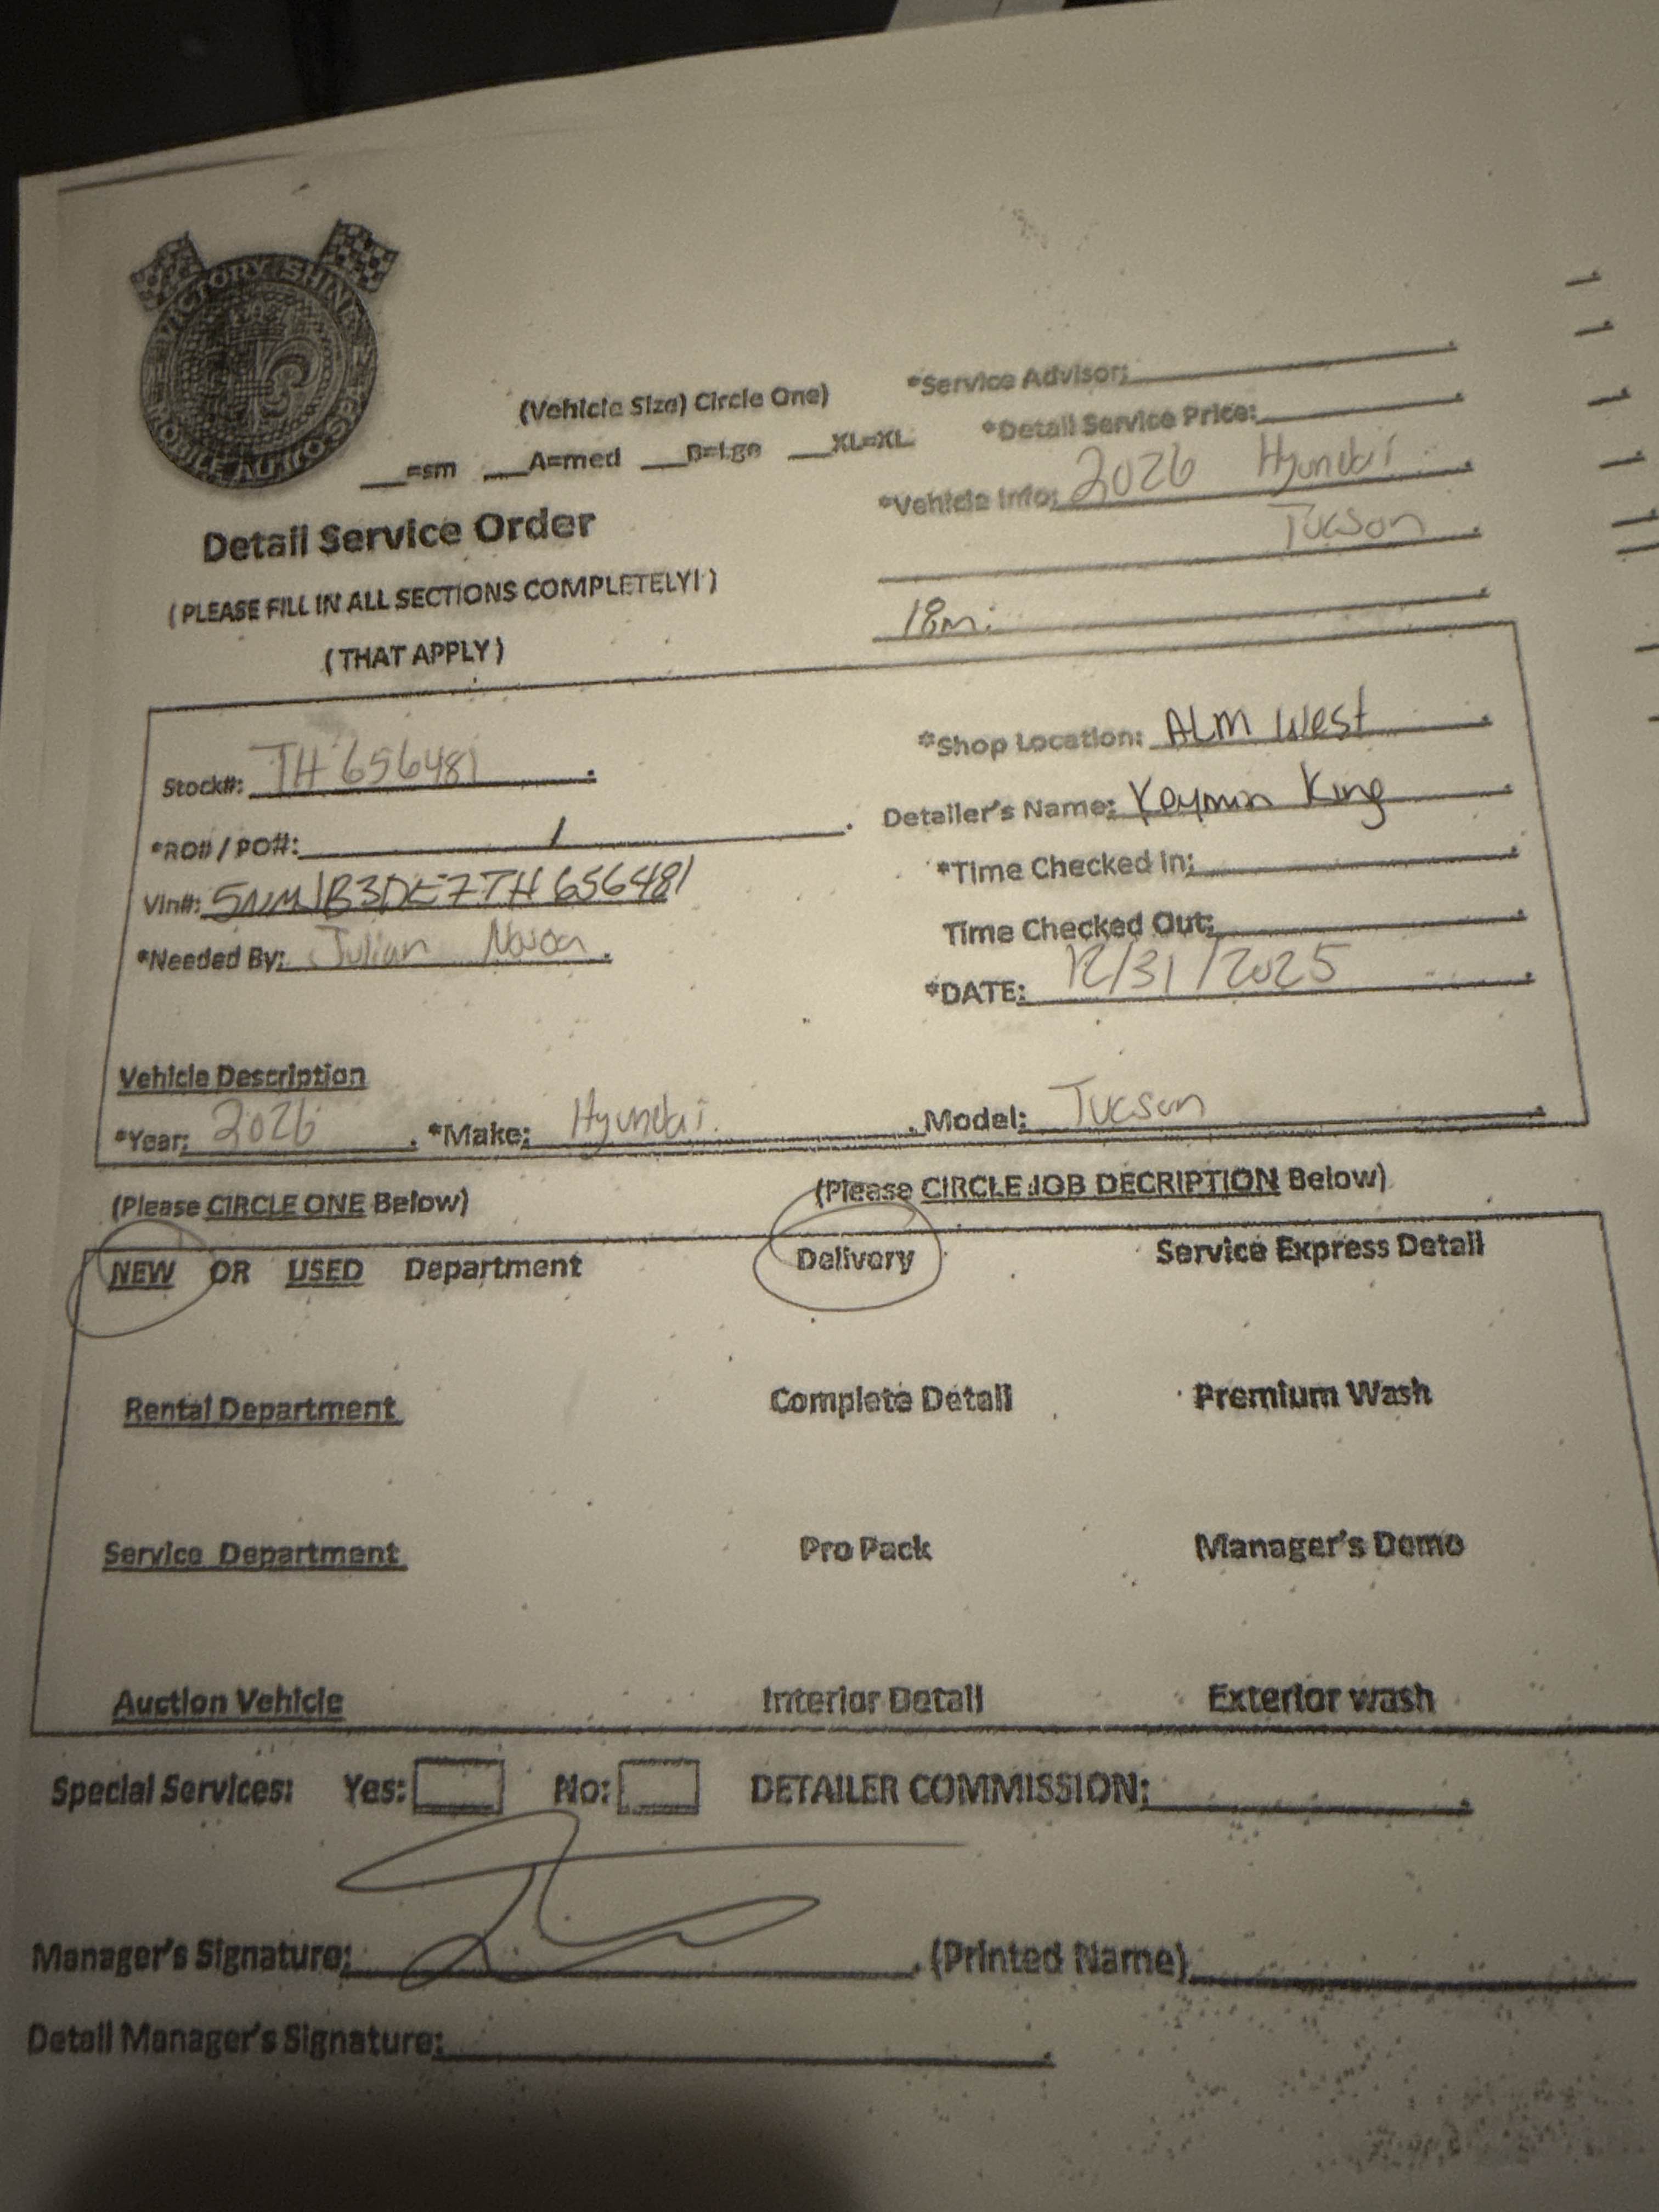 VICTORY SHINE
MOBILE AUTO SPA
(Vehicle Size) Circle One)
___=sm ___A=med ___B=Lge ___XL=XL
*Service Advisor:
*Detail Service Price:
*Vehicle Info: 2026 Hyundai
Tucson
18mi
Detail Service Order
(PLEASE FILL IN ALL SECTIONS COMPLETELY!)
(THAT APPLY)
Stock#: TH656481
*RO# / PO#: /
Vin#: 5NMJB3DE7TH656481
*Needed By: Julian
*Shop Location: ALM West
Detailer's Name: King
*Time Checked In:
Time Checked Out:
*DATE: 12/31/2025
Vehicle Description
*Year: 2026 . *Make: Hyundai. . Model: Tucson
(Please CIRCLE ONE Below) (Please CIRCLE JOB DECRIPTION Below)
NEW OR USED Department Delivery Service Express Detail
Rental Department Complete Detail Premium Wash
Service Department Pro Pack Manager's Demo
Auction Vehicle Interior Detail Exterior wash
Special Services: Yes: No: DETAILER COMMISSION:
Manager's Signature: . (Printed Name)
Detail Manager's Signature: